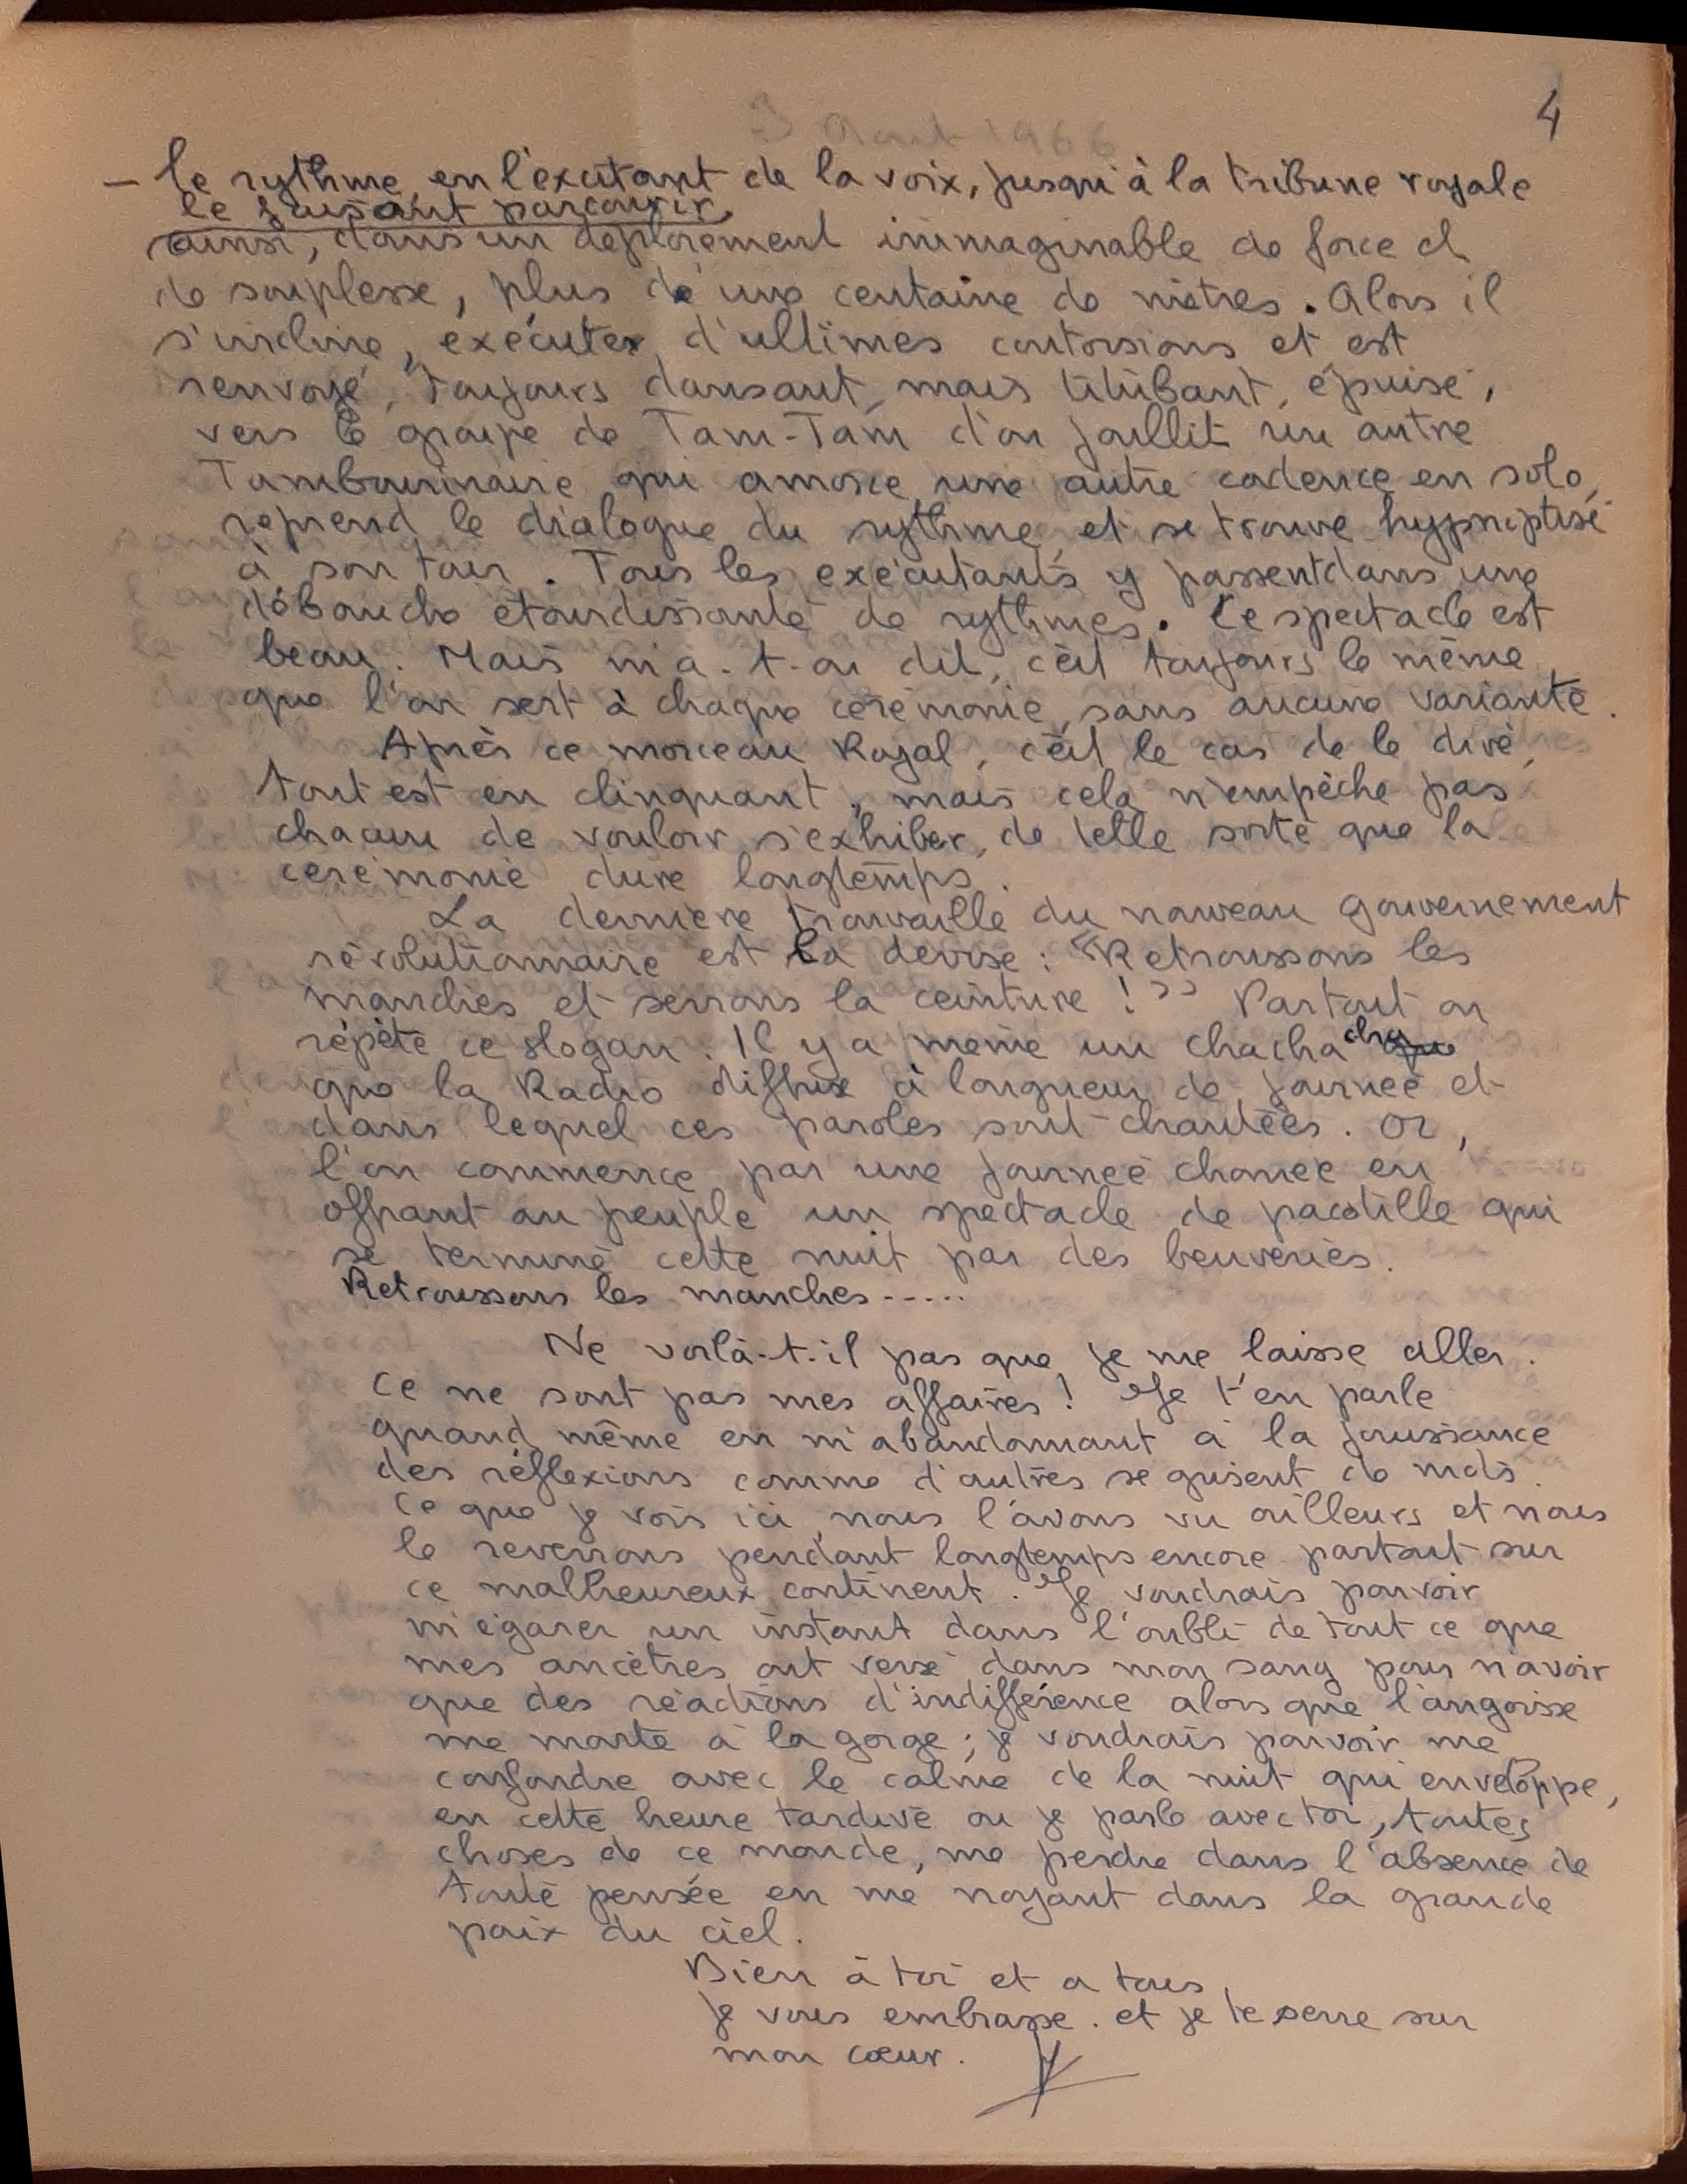 4
3 Août 1966
– le rythme, en l'exécutant de la voix, jusqu'à la tribune royale
le faisant parcourir,
ainsi, dans un déploiement inimaginable de force et
de souplesse, plus de une centaine de mètres. Alors il
s'incline, exécute d'ultimes contorsions et est
renvoyé, toujours dansant, mais titubant, épuisé,
vers le groupe de Tam-Tam d'où jaillit un autre
Tambourinaire qui amorce une autre cadence en solo,
reprend le dialogue du rythme, et se trouve hypnotisé
à son tour. Tous les exécutants y passent dans une
débauche étourdissante de rythmes. Le spectacle est
beau. Mais m'a-t-on dit, c'est toujours le même
que l'on sert à chaque cérémonie, sans aucune variante.
Après ce morceau Royal, c'est le cas de le dire,
tout est en clinquant, mais cela n'empêche pas
chacun de vouloir s'exhiber, de telle sorte que la
cérémonie dure longtemps.
La dernière trouvaille du nouveau gouvernement
révolutionnaire est la devise : "Retroussons les
manches et serrons la ceinture !" Partout on
répète ce slogan. Il y a même un chacha cha
que la Radio diffuse à longueur de journée et
dans lequel ces paroles sont chantées. Or,
l'on commence par une journée chomée en
offrant au peuple un spectacle de pacotille qui
se termine cette nuit par des beuveries.
Retroussons les manches.....
Ne voilà-t-il pas que je me laisse aller.
Ce ne sont pas mes affaires ! Je t'en parle
quand même en m'abandonnant à la jouissance
des réflexions comme d'autres se grisent de mots.
Ce que je vois ici, nous l'avons vu ailleurs et nous
le reverrons pendant longtemps encore partout sur
ce malheureux continent. Je voudrais pouvoir
m'égarer un instant dans l'oubli de tout ce que
mes ancêtres ont versé dans mon sang pour n'avoir
que des réactions d'indifférence alors que l'angoisse
me monte à la gorge ; je voudrais pouvoir me
confondre avec le calme de la nuit qui enveloppe,
en cette heure tardive où je parle avec toi, toutes
choses de ce monde, me perdre dans l'absence de
toute pensée en me noyant dans la grande
paix du ciel.
Bien à toi et à tous
Je vous embrasse. et je te serre sur
mon cœur.